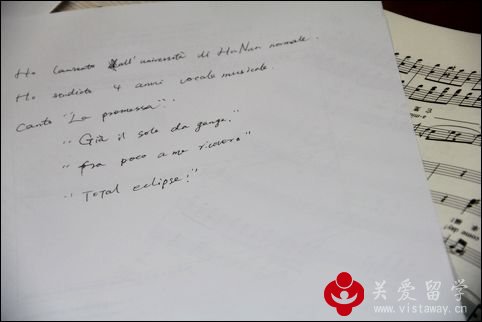 Ho laureato all'università di HuNan normale.
Ho studiato 4 anni vocale musicale.
Canto "La promessa".
"Già il sole da gange."
"fra poco a me ricovero"
"Total eclipse!"
关爱留学
www.vistaway.cn